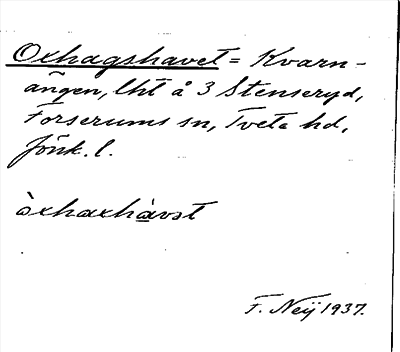 Oxhagshavet = Kvarn-
ängen, lht å 3 Stenseryd,
Forserums sn, Tveta hd,
Jönk. l.
òxhaxhàvət
F. Neij 1937.